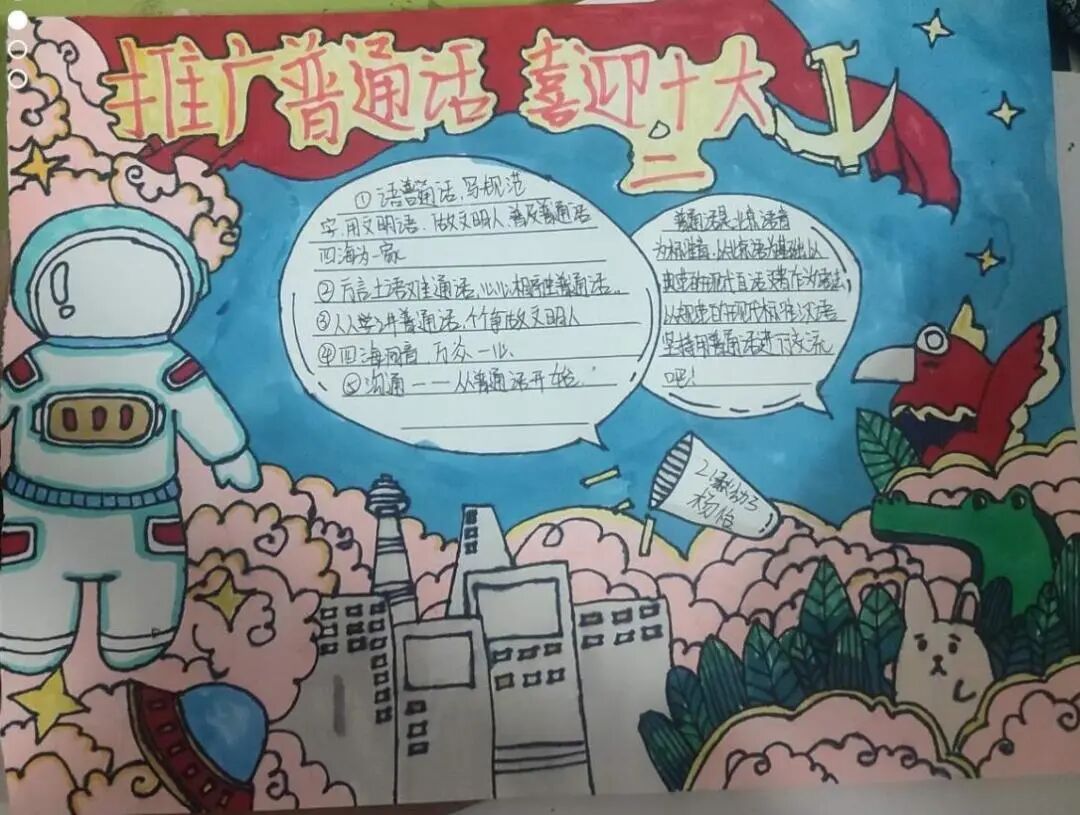 推广普通话 喜迎十大
二
①语普通话,写规范
字,用文明语,做文明人,普及普通话
四海为一家
②方言土语难通话,心心相印讲普通话。
③人人学讲普通话,个个争做文明人
④四海同音,万众一心、
⑤沟通——从普通话开始.
普通话是北京语音
为标准音,以北京话为基础,以
典范的现代白话文著作为语法,
以规范的现代标准汉语
坚持用普通话进行交流
吧!
21秋幼3
杨怡